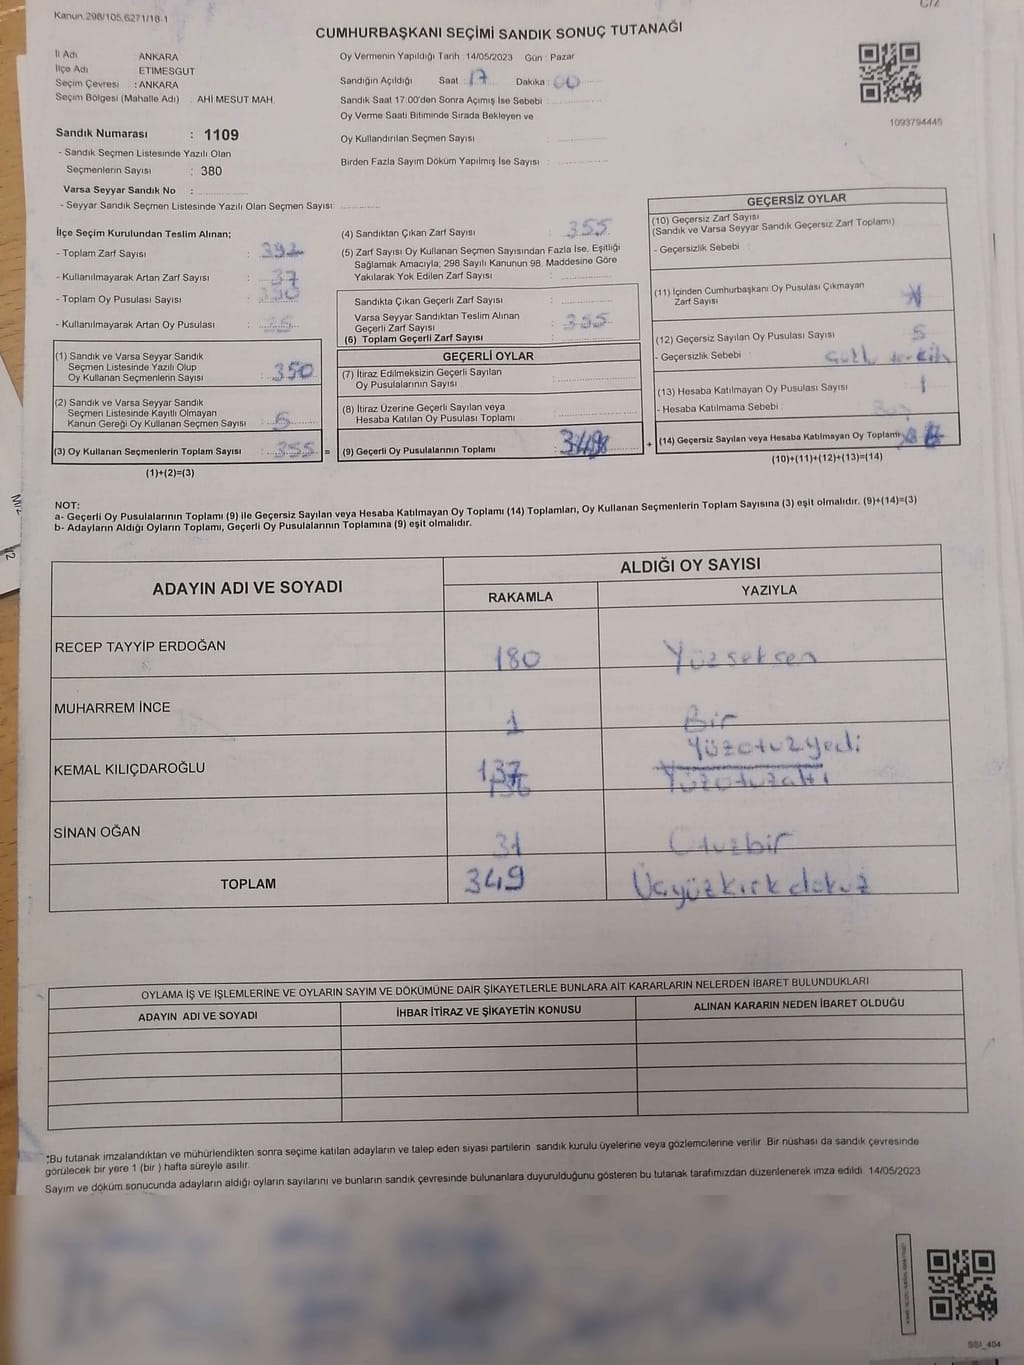 Kanun.298/105,6271/18-1
C/2
CUMHURBAŞKANI SEÇİMİ SANDIK SONUÇ TUTANAĞI
İl Adı ANKARA
İlçe Adı ETIMESGUT
Seçim Çevresi : ANKARA
Seçim Bölgesi (Mahalle Adı) : AHİ MESUT MAH.
Oy Vermenin Yapıldığı Tarih : 14/05/2023 Gün : Pazar
Sandığın Açıldığı Saat : 17 Dakika : 00
Sandık Saat 17:00'den Sonra Açımış İse Sebebi :
Oy Verme Saati Bitiminde Sırada Bekleyen ve
Oy Kullandırılan Seçmen Sayısı :
Birden Fazla Sayım Döküm Yapılmış İse Sayısı :
1093794445
Sandık Numarası : 1109
- Sandık Seçmen Listesinde Yazılı Olan
Seçmenlerin Sayısı : 380
Varsa Seyyar Sandık No :
- Seyyar Sandık Seçmen Listesinde Yazılı Olan Seçmen Sayısı:
İlçe Seçim Kurulundan Teslim Alınan;
- Toplam Zarf Sayısı : 392
- Kullanılmayarak Artan Zarf Sayısı : 37
- Toplam Oy Pusulası Sayısı :
- Kullanılmayarak Artan Oy Pusulası :
(1) Sandık ve Varsa Seyyar Sandık
Seçmen Listesinde Yazılı Olup
Oy Kullanan Seçmenlerin Sayısı : 350
(2) Sandık ve Varsa Seyyar Sandık
Seçmen Listesinde Kayıtlı Olmayan
Kanun Gereği Oy Kullanan Seçmen Sayısı : 5
(3) Oy Kullanan Seçmenlerin Toplam Sayısı : 355 =
(1)+(2)=(3)
(4) Sandıktan Çıkan Zarf Sayısı : 355
(5) Zarf Sayısı Oy Kullanan Seçmen Sayısından Fazla İse, Eşitliği
Sağlamak Amacıyla; 298 Sayılı Kanunun 98. Maddesine Göre
Yakılarak Yok Edilen Zarf Sayısı :
Sandıkta Çıkan Geçerli Zarf Sayısı :
Varsa Seyyar Sandıktan Teslim Alınan
Geçerli Zarf Sayısı : 355
(6) Toplam Geçerli Zarf Sayısı :
GEÇERLİ OYLAR
(7) İtiraz Edilmeksizin Geçerli Sayılan
Oy Pusulalarının Sayısı :
(8) İtiraz Üzerine Geçerli Sayılan veya
Hesaba Katılan Oy Pusulası Toplamı :
(9) Geçerli Oy Pusulalarının Toplamı : +
GEÇERSİZ OYLAR
(10) Geçersiz Zarf Sayısı
(Sandık ve Varsa Seyyar Sandık Geçersiz Zarf Toplamı)
- Geçersizlik Sebebi :
(11) İçinden Cumhurbaşkanı Oy Pusulası Çıkmayan
Zarf Sayısı :
(12) Geçersiz Sayılan Oy Pusulası Sayısı : 5
- Geçersizlik Sebebi :
(13) Hesaba Katılmayan Oy Pusulası Sayısı : 1
- Hesaba Katılmama Sebebi :
(14) Geçersiz Sayılan veya Hesaba Katılmayan Oy Toplamı
(10)+(11)+(12)+(13)=(14)
NOT:
a- Geçerli Oy Pusulalarının Toplamı (9) ile Geçersiz Sayılan veya Hesaba Katılmayan Oy Toplamı (14) Toplamları, Oy Kullanan Seçmenlerin Toplam Sayısına (3) eşit olmalıdır. (9)+(14)=(3)
b- Adayların Aldığı Oyların Toplamı, Geçerli Oy Pusulalarının Toplamına (9) eşit olmalıdır.
ADAYIN ADI VE SOYADI
ALDIĞI OY SAYISI
RAKAMLA YAZIYLA
RECEP TAYYİP ERDOĞAN 180 Yüzseksen
MUHARREM İNCE 1 Bir
KEMAL KILIÇDAROĞLU 137 Yüzotuzyedi
136 Yüzotuzaltı
SİNAN OĞAN 31 Otuzbir
TOPLAM 349 Üçyüzkırkdokuz
OYLAMA İŞ VE İŞLEMLERİNE VE OYLARIN SAYIM VE DÖKÜMÜNE DAİR ŞİKAYETLERLE BUNLARA AİT KARARLARIN NELERDEN İBARET BULUNDUKLARI
ADAYIN ADI VE SOYADI İHBAR İTİRAZ VE ŞİKAYETİN KONUSU ALINAN KARARIN NEDEN İBARET OLDUĞU
*Bu tutanak imzalandıktan ve mühürlendikten sonra seçime katılan adayların ve talep eden siyasi partilerin sandık kurulu üyelerine veya gözlemcilerine verilir. Bir nüshası da sandık çevresinde
görülecek bir yere 1 (bir ) hafta süreyle asılır.
Sayım ve döküm sonucunda adayların aldığı oyların sayılarını ve bunların sandık çevresinde bulunanlara duyurulduğunu gösteren bu tutanak tarafımızdan düzenlenerek imza edildi. 14/05/2023
SSI_404